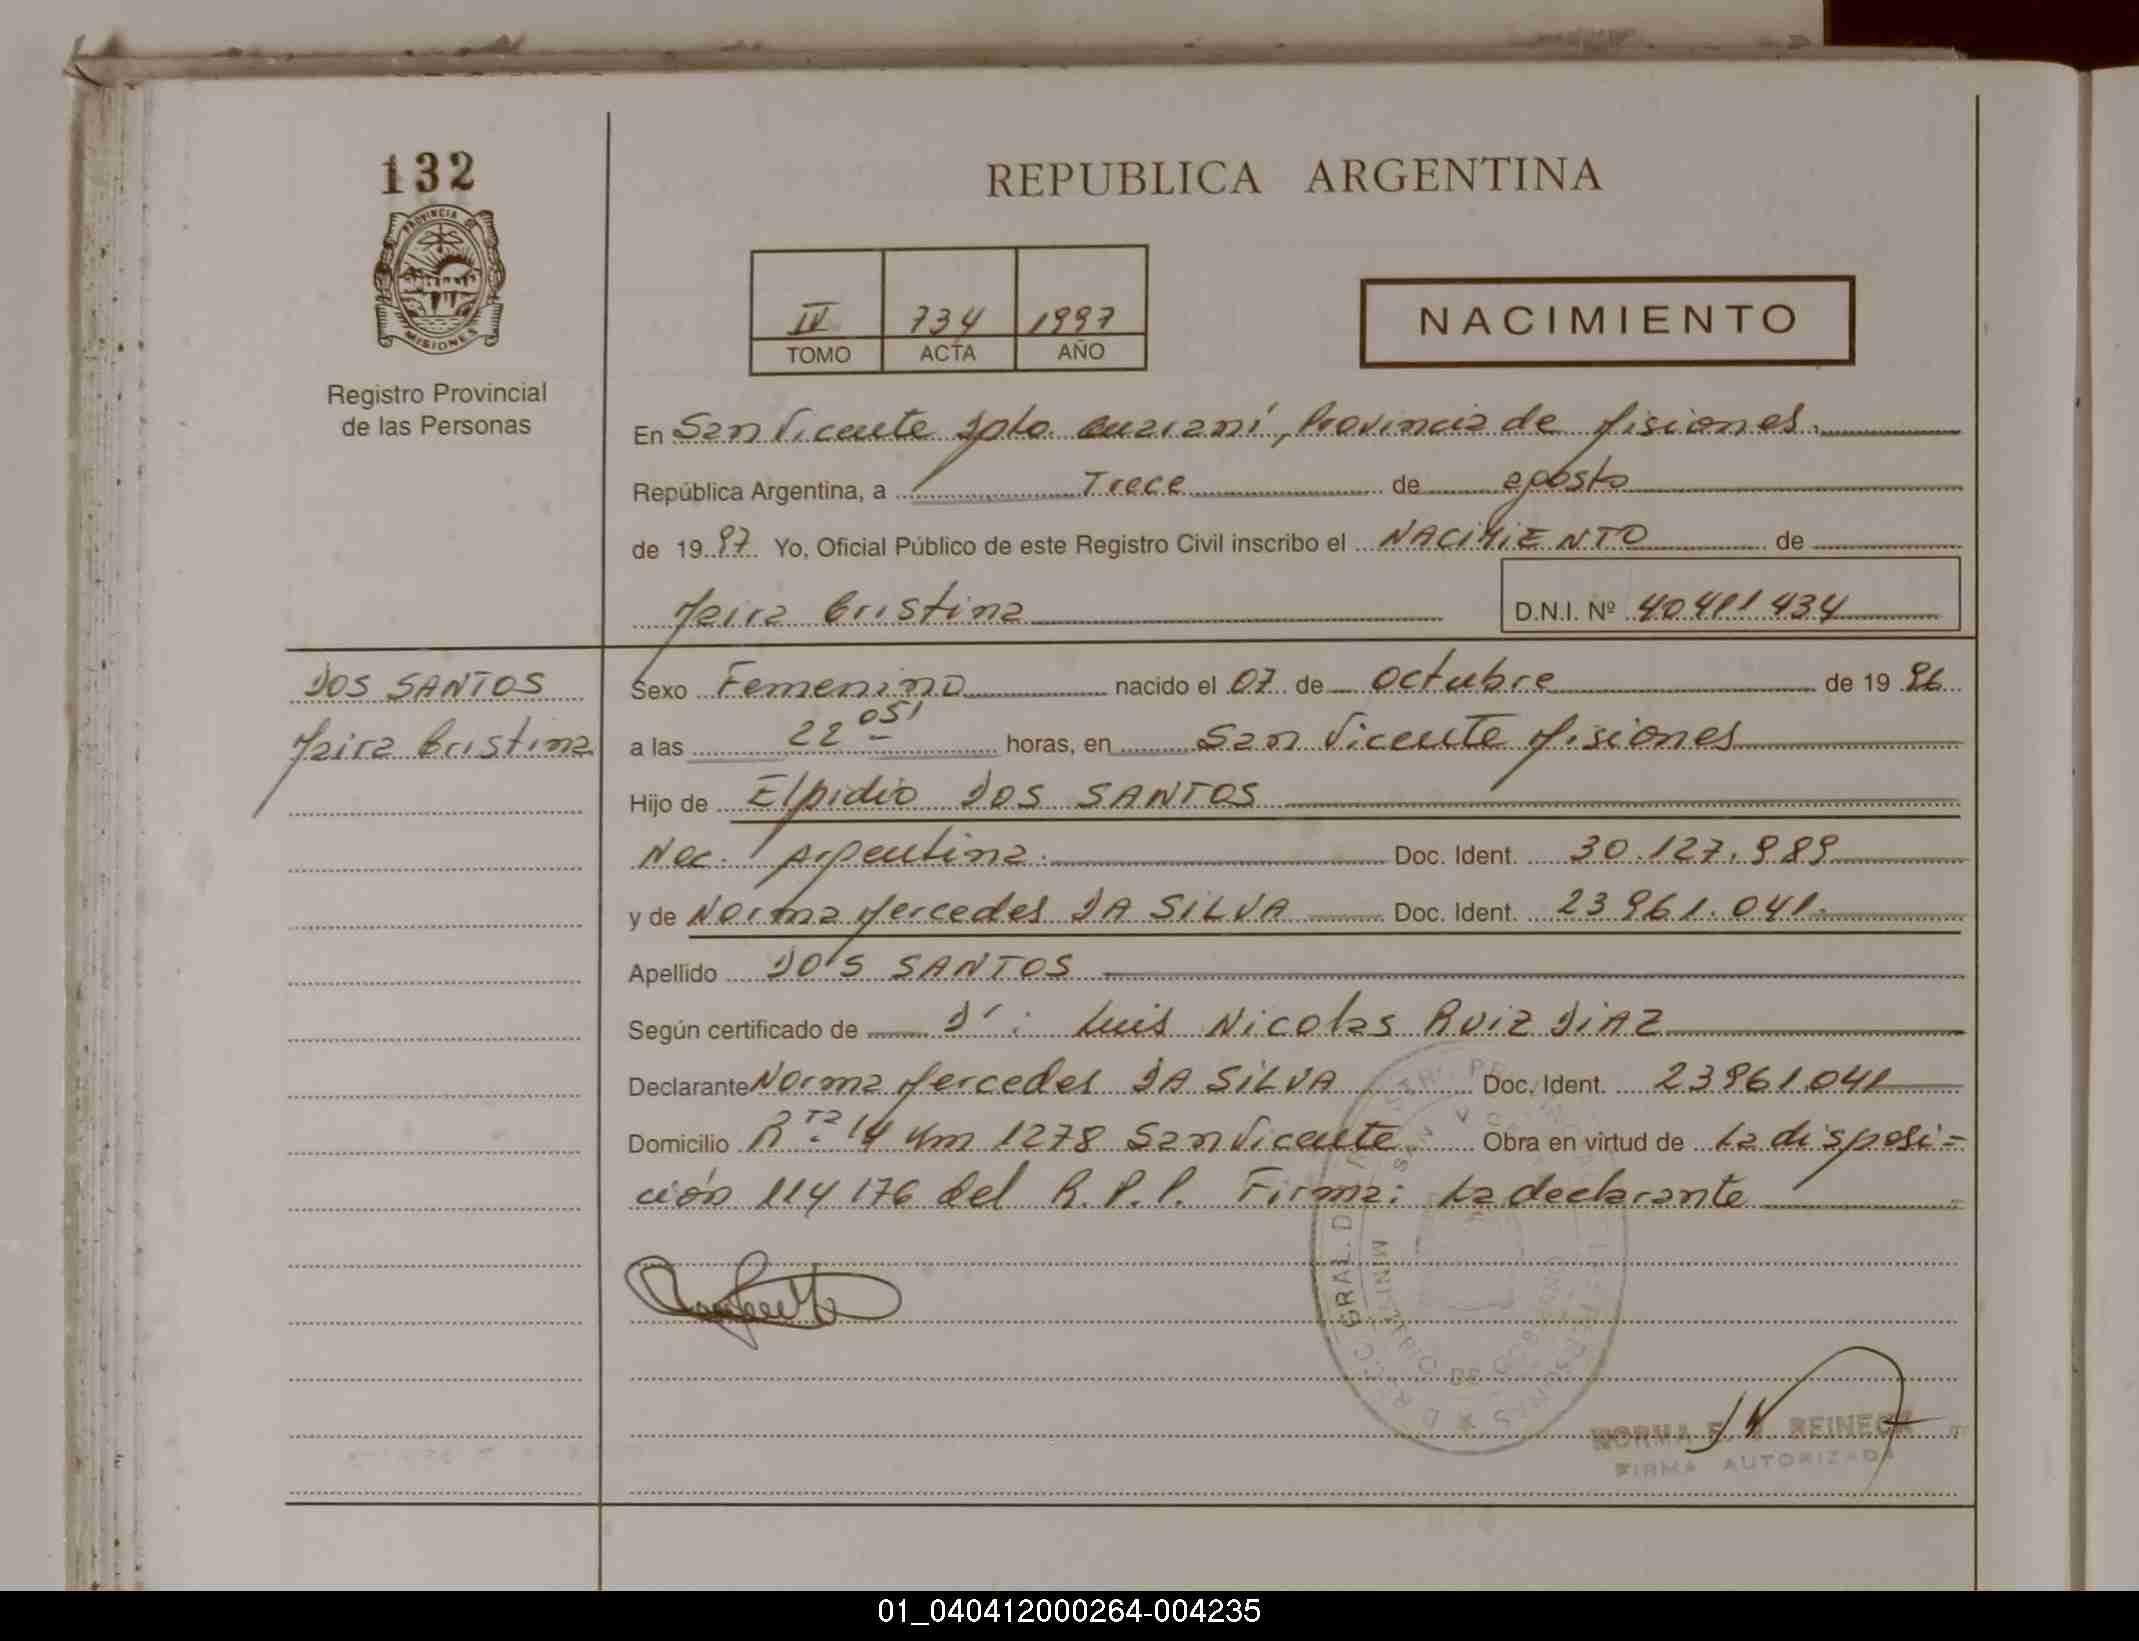 132
REPUBLICA ARGENTINA
PROVINCIA DE
MISIONES
Registro Provincial
de las Personas
IV 734 1997
TOMO ACTA AÑO
NACIMIENTO
En San Vicente Dpto. Guaraní, Provincia de Misiones.
República Argentina, a Trece de agosto
de 1997 Yo, Oficial Público de este Registro Civil inscribo el NACIMIENTO de
Maira Cristina D.N.I. Nº 40411434
DOS SANTOS
Maira Cristina
Sexo Femenino nacido el 07 de octubre de 1996
a las 22 05' horas, en San Vicente Misiones
Hijo de Elpidio DOS SANTOS
Nac. Argentina. Doc. Ident. 30.127.989
y de Norma Mercedes DA SILVA Doc. Ident. 23961.041.
Apellido DOS SANTOS
Según certificado de Dr: Luis Nicolas RUIZ DIAZ
Declarante Norma Mercedes DA SILVA Doc. Ident. 23961041
Domicilio Rta 14 Km 1278 San Vicente Obra en virtud de La disposi=
ción 114/76 del R.P.P. Firma: La declarante
MINISTERIO DE GOBIERNO
NORMA E. REINECK
FIRMA AUTORIZADA
01_040412000264-004235